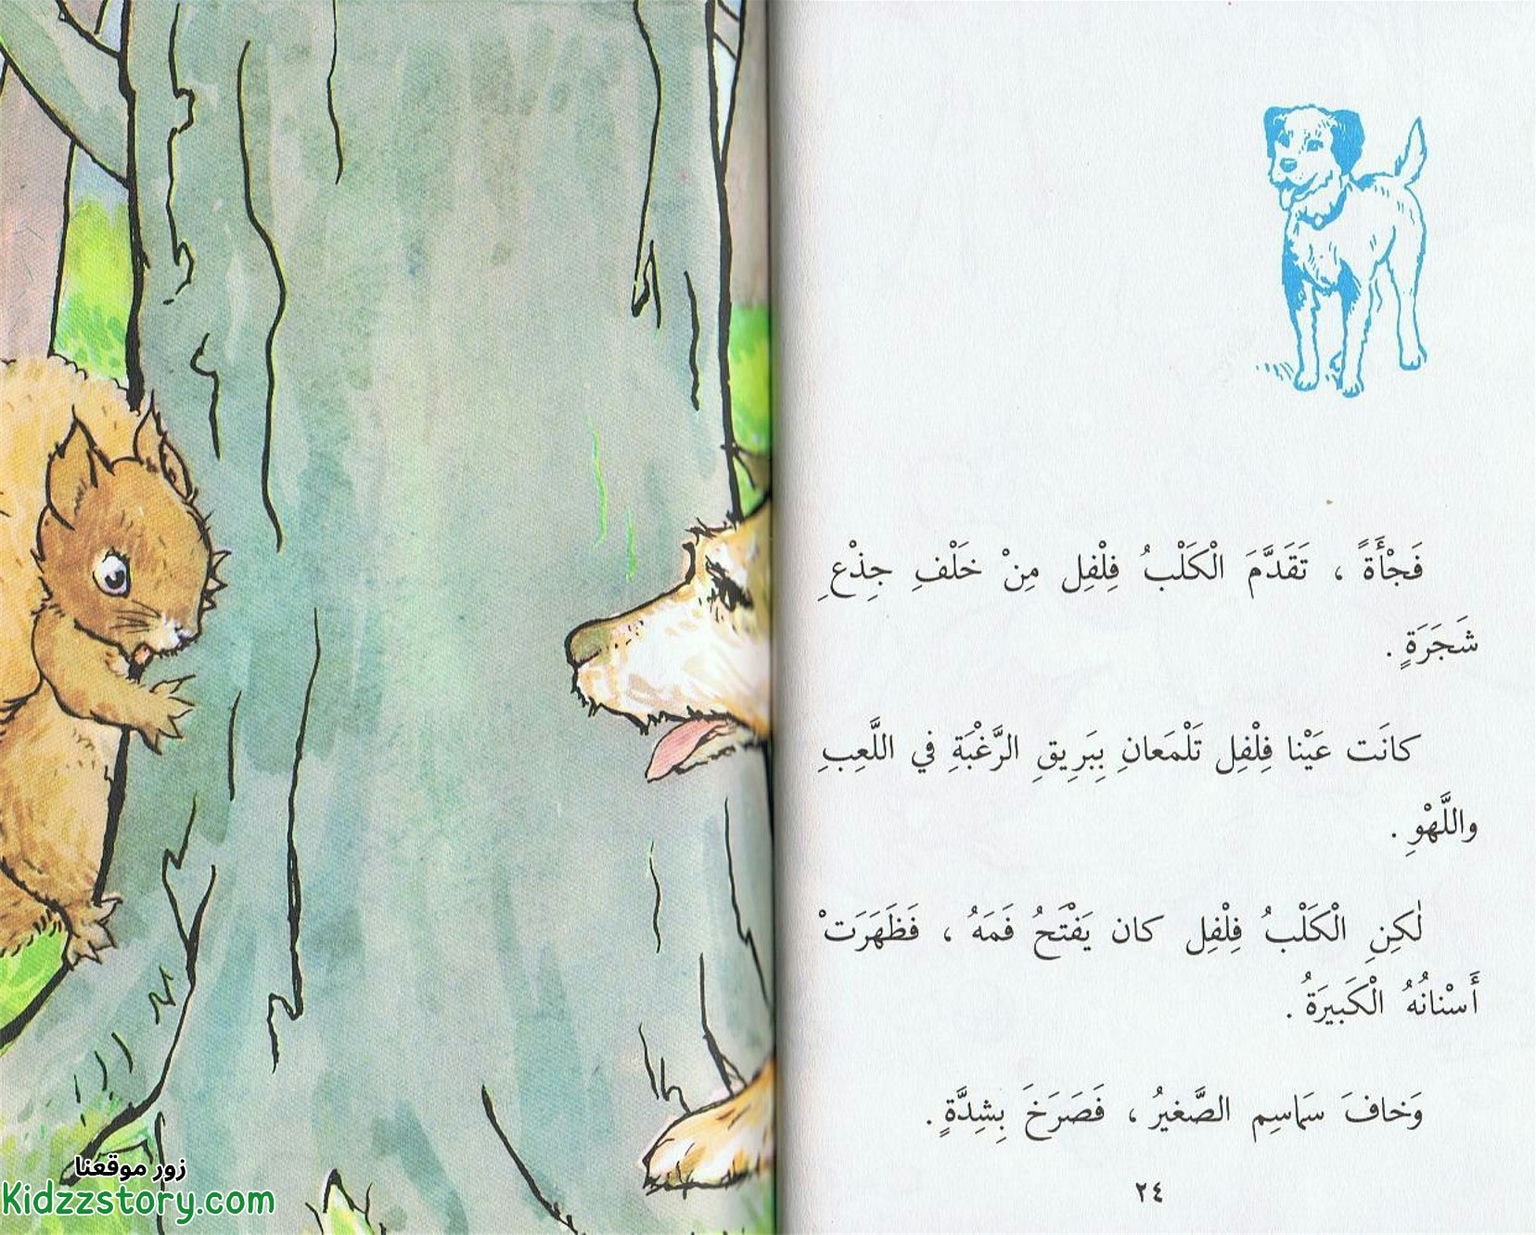 فَجْأَةً ، تَقَدَّمَ الْكَلْبُ فِلْفِل مِنْ خَلْفِ جِذْعِ
شَجَرَةٍ .
كانَت عَيْنا فِلْفِل تَلْمَعانِ بِبَرِيقِ الرَّغْبَةِ في اللَّعِبِ
واللَّهْوِ .
لٰكِنِ الْكَلْبُ فِلْفِل كان يَفْتَحُ فَمَهُ ، فَظَهَرَتْ
أَسْنانُهُ الْكَبيرَةُ .
وَخافَ سَماسِم الصَّغيرُ ، فَصَرَخَ بِشِدَّةٍ .
٢٤
زور موقعنا
Kidzzstory.com